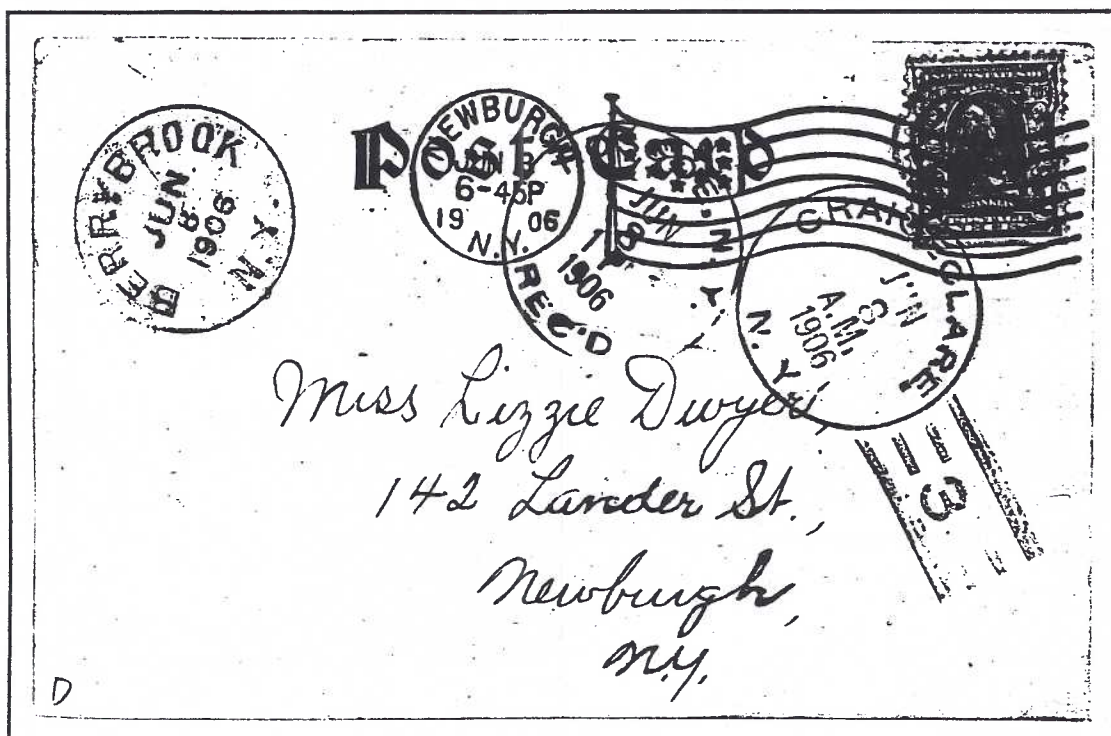 BERRYBROOK N.Y.
JUN
8
1906
Post Card
NEWBURGH
JUN 8
6-45P
19 06
N.Y.
JUN
8
1906
REC'D
N.Y.
CRAIG-CLARE,
N.Y.
8
A.M.
1906
3
Miss Lizzie Dwyer,
142 Lander St.,
Newburgh,
N.Y.
D